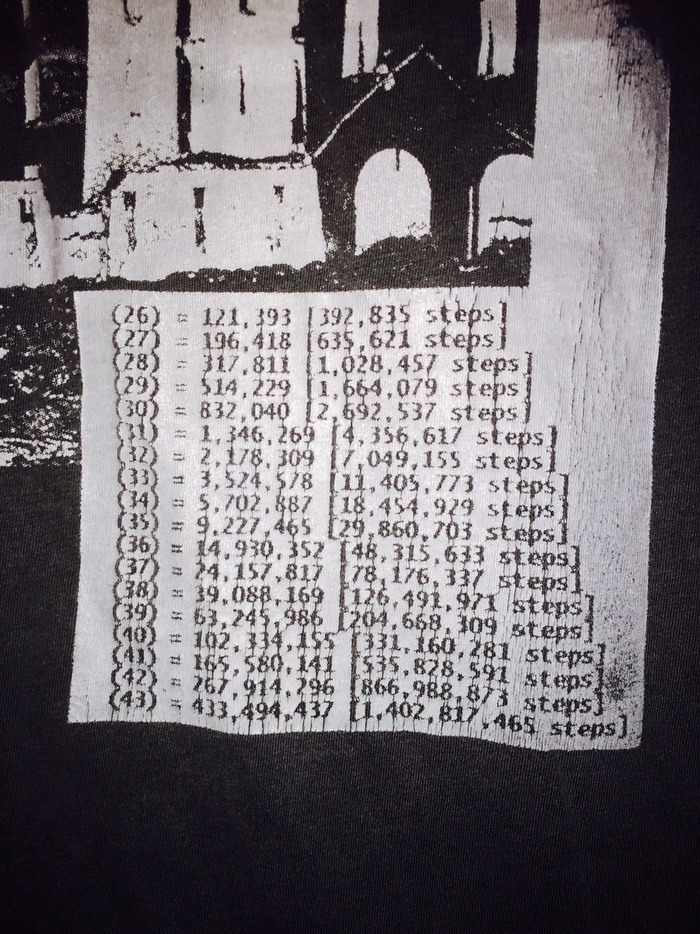 (26) = 121,393 [392,835 steps]
(27) = 196,418 [635,621 steps]
(28) = 317,811 [1,028,457 steps]
(29) = 514,229 [1,664,079 steps]
(30) = 832,040 [2,692,537 steps]
(31) = 1,346,269 [4,356,617 steps]
(32) = 2,178,309 [7,049,155 steps]
(33) = 3,524,578 [11,405,773 steps]
(34) = 5,702,887 [18,454,929 steps]
(35) = 9,227,465 [29,860,703 steps]
(36) = 14,930,352 [48,315,633 steps]
(37) = 24,157,817 [78,176,337 steps]
(38) = 39,088,169 [126,491,971 steps]
(39) = 63,245,986 [204,668,309 steps]
(40) = 102,334,155 [331,160,281 steps]
(41) = 165,580,141 [535,828,591 steps]
(42) = 267,914,296 [866,988,873 steps]
(43) = 433,494,437 [1,402,817,465 steps]